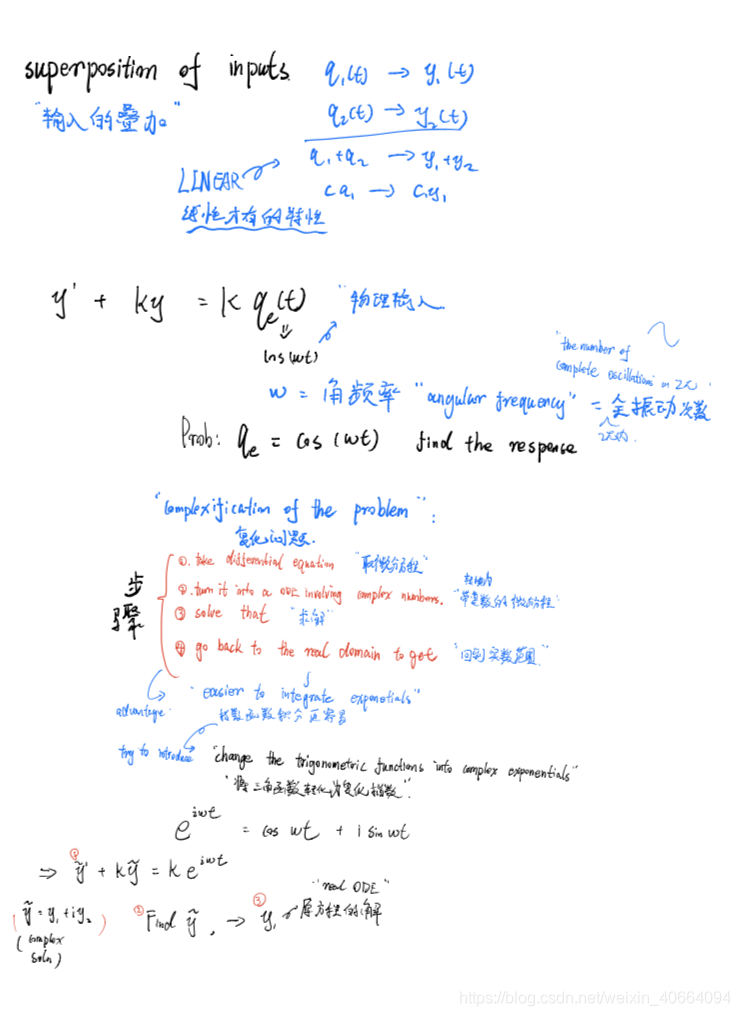 superposition of inputs. q₁(t) → y₁(t)
"输入的叠加" q₂(t) → y₂(t)
LINEAR q₁+q₂ → y₁+y₂
cq₁ → cy₁
线性才有的特性
y' + ky = k qₑ(t) "物理输入
cos(wt)
"the number of
complete oscillations in 2π"
w = 角频率 "angular frequency" = 全振动次数
2π内.
Prob: qₑ = cos(wt) find the response
"complexification of the problem":
复化问题.
步骤
①. take differential equation "取微分方程"
②. turn it into a ODE involving complex numbers. "带复数的微分方程"
③ solve that "求解"
④ go back to the real domain to get "回到实数范围"
advantage. "easier to integrate exponentials"
指数函数积分更容易
try to introduce "change the trigonometric functions into complex exponentials"
"将三角函数转化为复化指数".
e^{iwt} = cos wt + i sin wt
⇒ ① ỹ' + kỹ = k e^{iwt}
"real ODE"
ỹ = y₁ + iy₂ ② Find ỹ, → ③ y₁ 原方程的解
(complex
soln)
https://blog.csdn.net/weixin_40664094